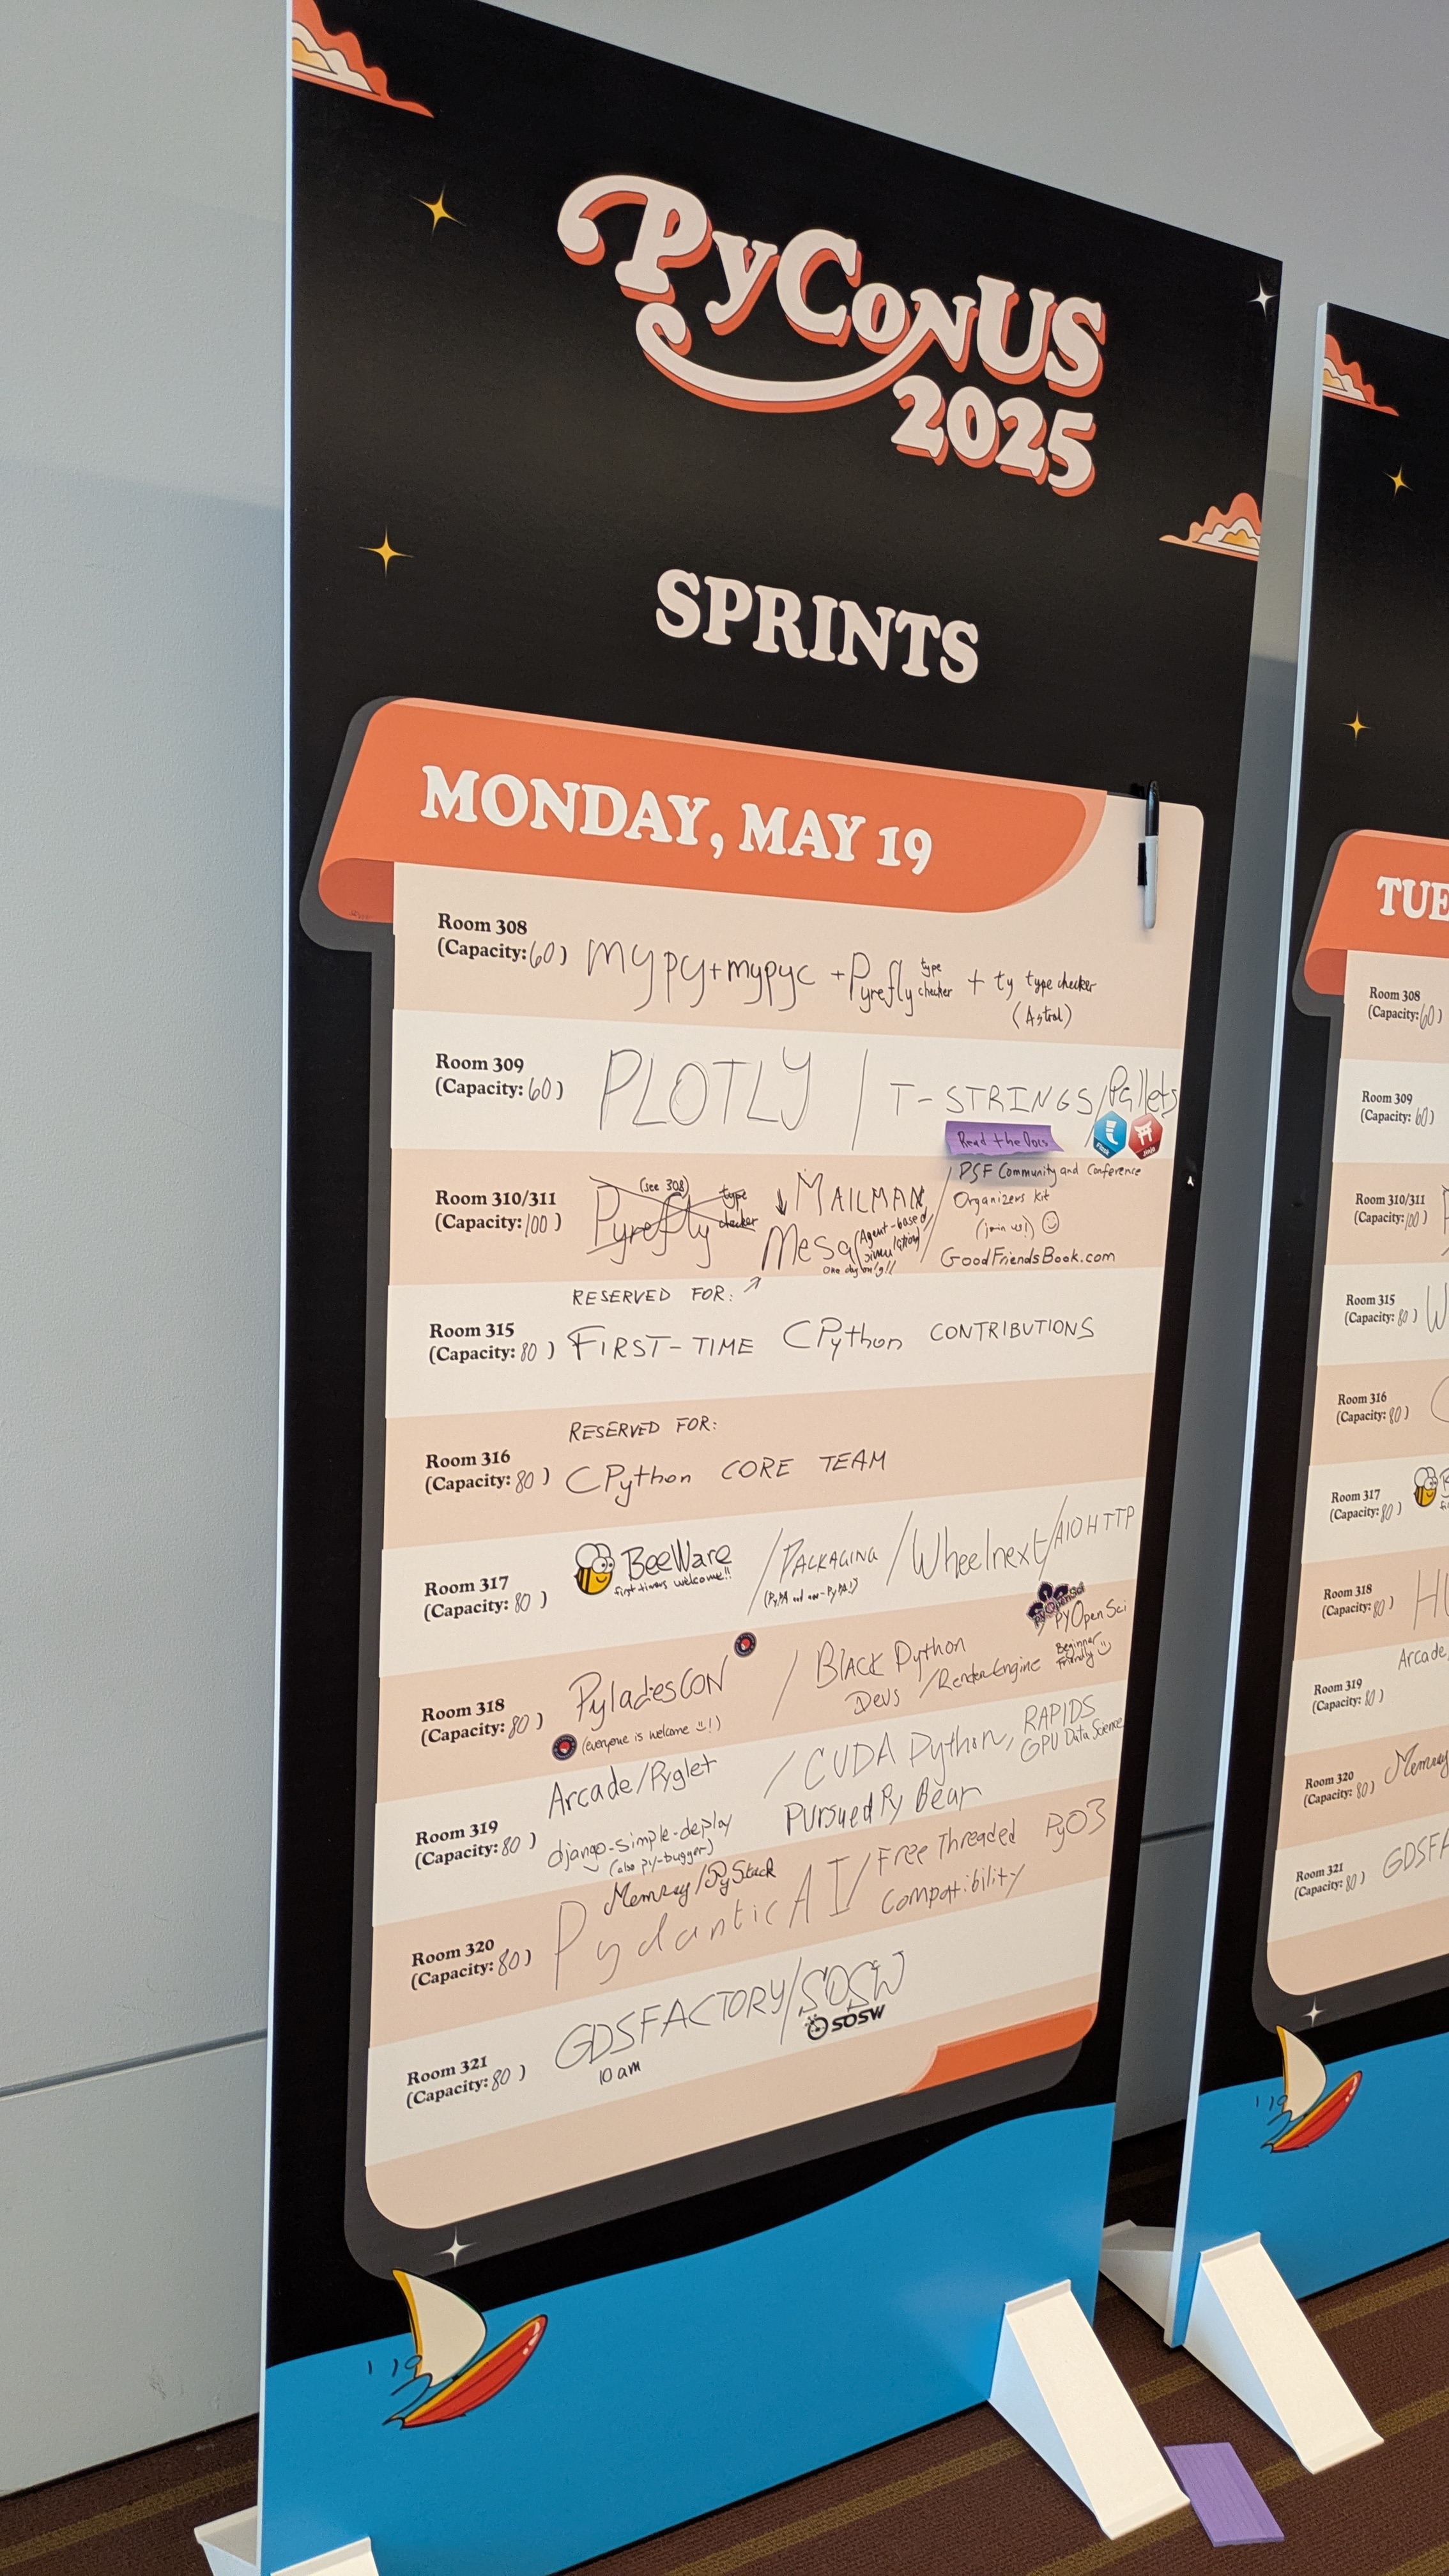 PyConUS
2025
SPRINTS
MONDAY, MAY 19
Room 308
(Capacity: 60)
mypy + mypyc + Pyrefly type checker + ty type checker
(Astral)
Room 309
(Capacity: 60)
PLOTLY / T-STRINGS / Pallets
Read the Docs
Flask
Jinja
Room 310/311
(Capacity: 100)
(see 308)
Pyrefly type checker
↓ MAILMAN
Mesa (Agent-based simulation)
One day only!!
/ PSF Community and Conference
Organizers Kit
(join us!) ☺
GoodFriendsBook.com
Room 315
(Capacity: 80)
RESERVED FOR: ↗
FIRST-TIME CPython CONTRIBUTIONS
Room 316
(Capacity: 80)
RESERVED FOR:
CPython CORE TEAM
Room 317
(Capacity: 80)
BeeWare
first timers welcome!!
/ PACKAGING
(PyPA and non-PyPA!)
/ Wheelnext / AIOHTTP
Room 318
(Capacity: 80)
PyladiesCON
(everyone is welcome ☺!)
/ BLACK Python
Devs / Render Engine
pyOpenSci
PYOpenSci
Beginner
Friendly ☺
Room 319
(Capacity: 80)
Arcade/Pyglet
django-simple-deploy
(also py-bugger)
/ CUDA Python, RAPIDS
GPU Data Science
PursuedPyBear
Room 320
(Capacity: 80)
Memray/PyStack
Pydantic AI / Free Threaded
Compatibility
PyO3
Room 321
(Capacity: 80)
GDSFACTORY / SOSW
10 am
SOSW
TUE
Room 308
(Capacity: 60)
Room 309
(Capacity: 60)
Room 310/311
(Capacity: 100)
Room 315
(Capacity: 80)
Room 316
(Capacity: 80)
Room 317
(Capacity: 80)
Room 318
(Capacity: 80)
Room 319
(Capacity: 80)
Arcade,
Room 320
(Capacity: 80)
Memray
Room 321
(Capacity: 80)
GDSFA